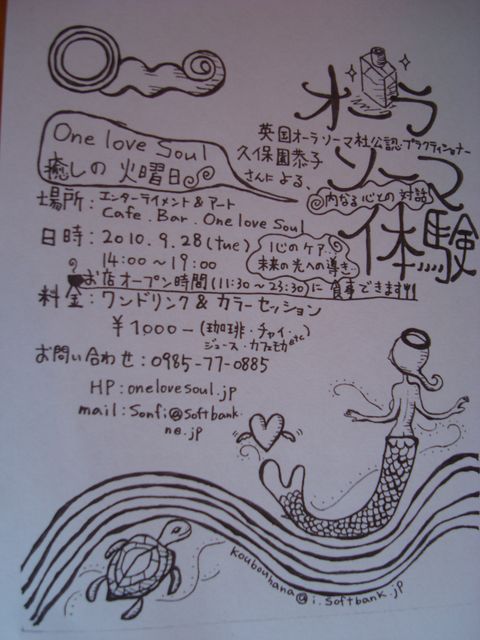 オーラ
ソーマ
体験
英国オーラソーマ社公認プラクティショナー
久保園恭子
さんによる、
内なる心との対話
One love Soul
癒しの火曜日
場所:エンターテイメント&アート
Cafe.Bar.One love Soul
日時:2010.9.28(tue)
14:00~19:00
心のケア...
未来の先への導き...
お店オープン時間(11:30~23:30)に食事できます!!
料金:ワンドリンク&カラーセッション
¥1000-(珈琲・チャイ・
ジュース・カフェモカetc)
お問い合わせ:0985-77-0885
HP:onelovesoul.jp
mail:Sonfi@softbank.
ne.jp
koubouhana@i.softbank.jp